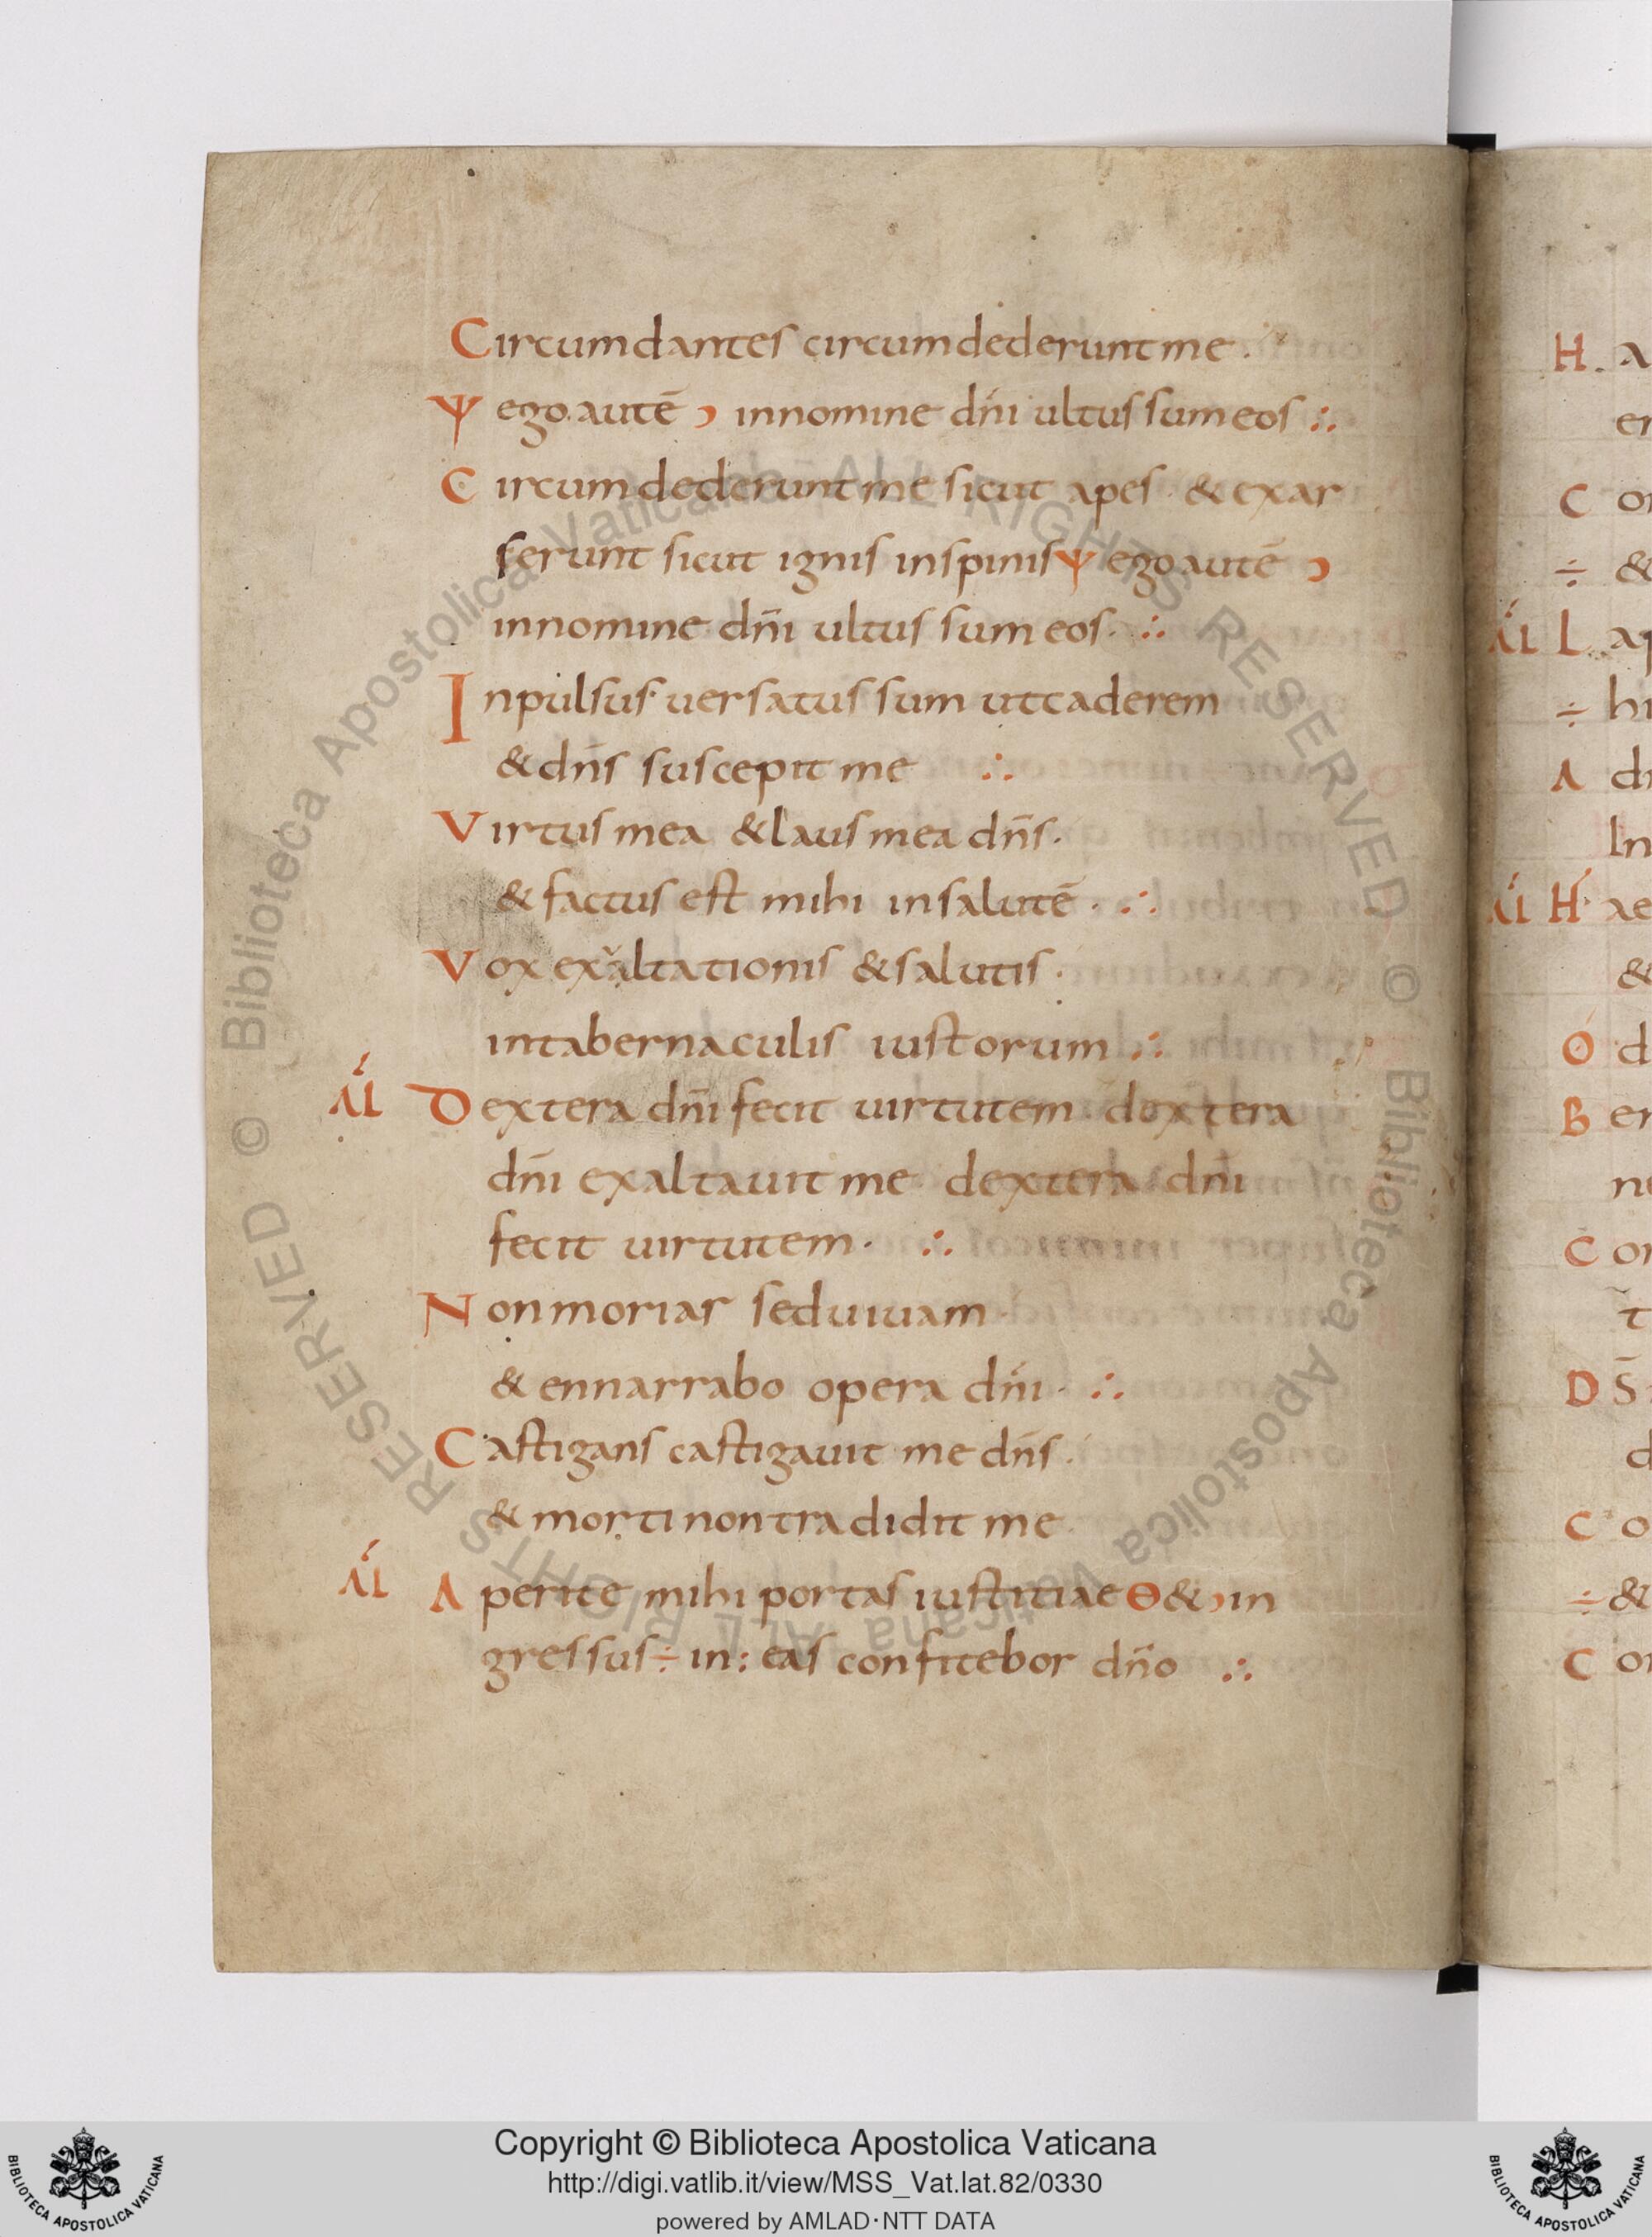 Circumdantes circumdederunt me ·
Ψ ego autē ͻ innomine dn̄i ultus sum eos ∴
Circumdederunt me sicut apes · & exar
serunt sicut ignis inspinis Ψ ego autē ͻ
innomine dn̄i ultus sum eos · ∴
Inpulsus · uersatus sum ut caderem
& dn̄s suscepit me ∴
Virtus mea & laus mea dn̄s ·
& factus est mihi insalutē · ∴
Vox exaltationis & salutis ·
intabernaculis iustorum ∴
Al Dextera dn̄i fecit uirtutem dextera
dn̄i exaltauit me dextera dn̄i
fecit uirtutem · ∴
Non moriar sed uiuam ·
& ennarrabo opera dn̄i · ∴
Castigans castigauit me dn̄s ·
& morti non tradidit me
Al Aperite mihi portas iustitiae Θ & ͻ in
gressus ÷ in : eas confitebor dn̄o ∴
H a
er
C on
÷ &
Al L ap
÷ hi
A d
In
Al H ae
&
O d
B en
ne
C on
t
D S̄
d
C o
÷ &
C on
© Biblioteca Apostolica Vaticana - ALL RIGHTS RESERVED © Biblioteca Apostolica Vaticana - ALL RIGHTS RESERVED
Copyright © Biblioteca Apostolica Vaticana
http://digi.vatlib.it/view/MSS_Vat.lat.82/0330
powered by AMLAD·NTT DATA
BIBLIOTECA APOSTOLICA VATICANA
BIBLIOTECA APOSTOLICA VATICANA